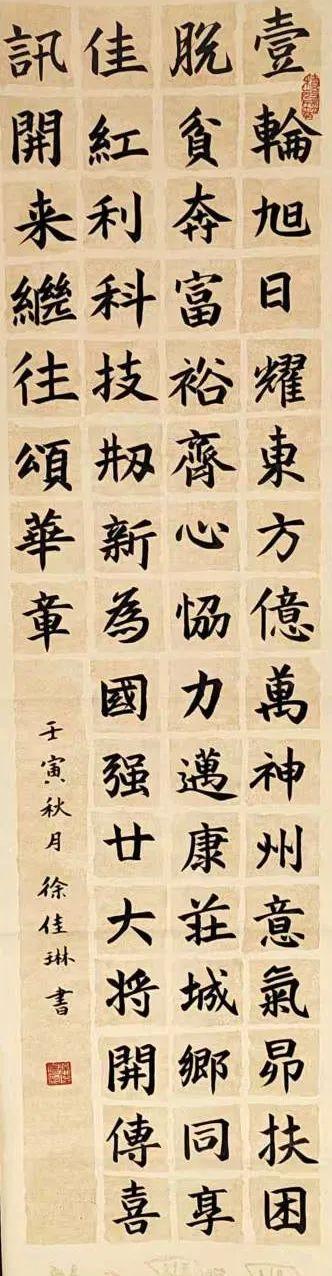 壹輪旭日耀東方億萬神州意氣昂扶困
脱貧奔富裕齊心恊力邁康莊城鄉同享
佳紅利科技刱新為國强廿大将開傳喜
訊開来繼往頌華章
壬寅秋月徐佳琳書